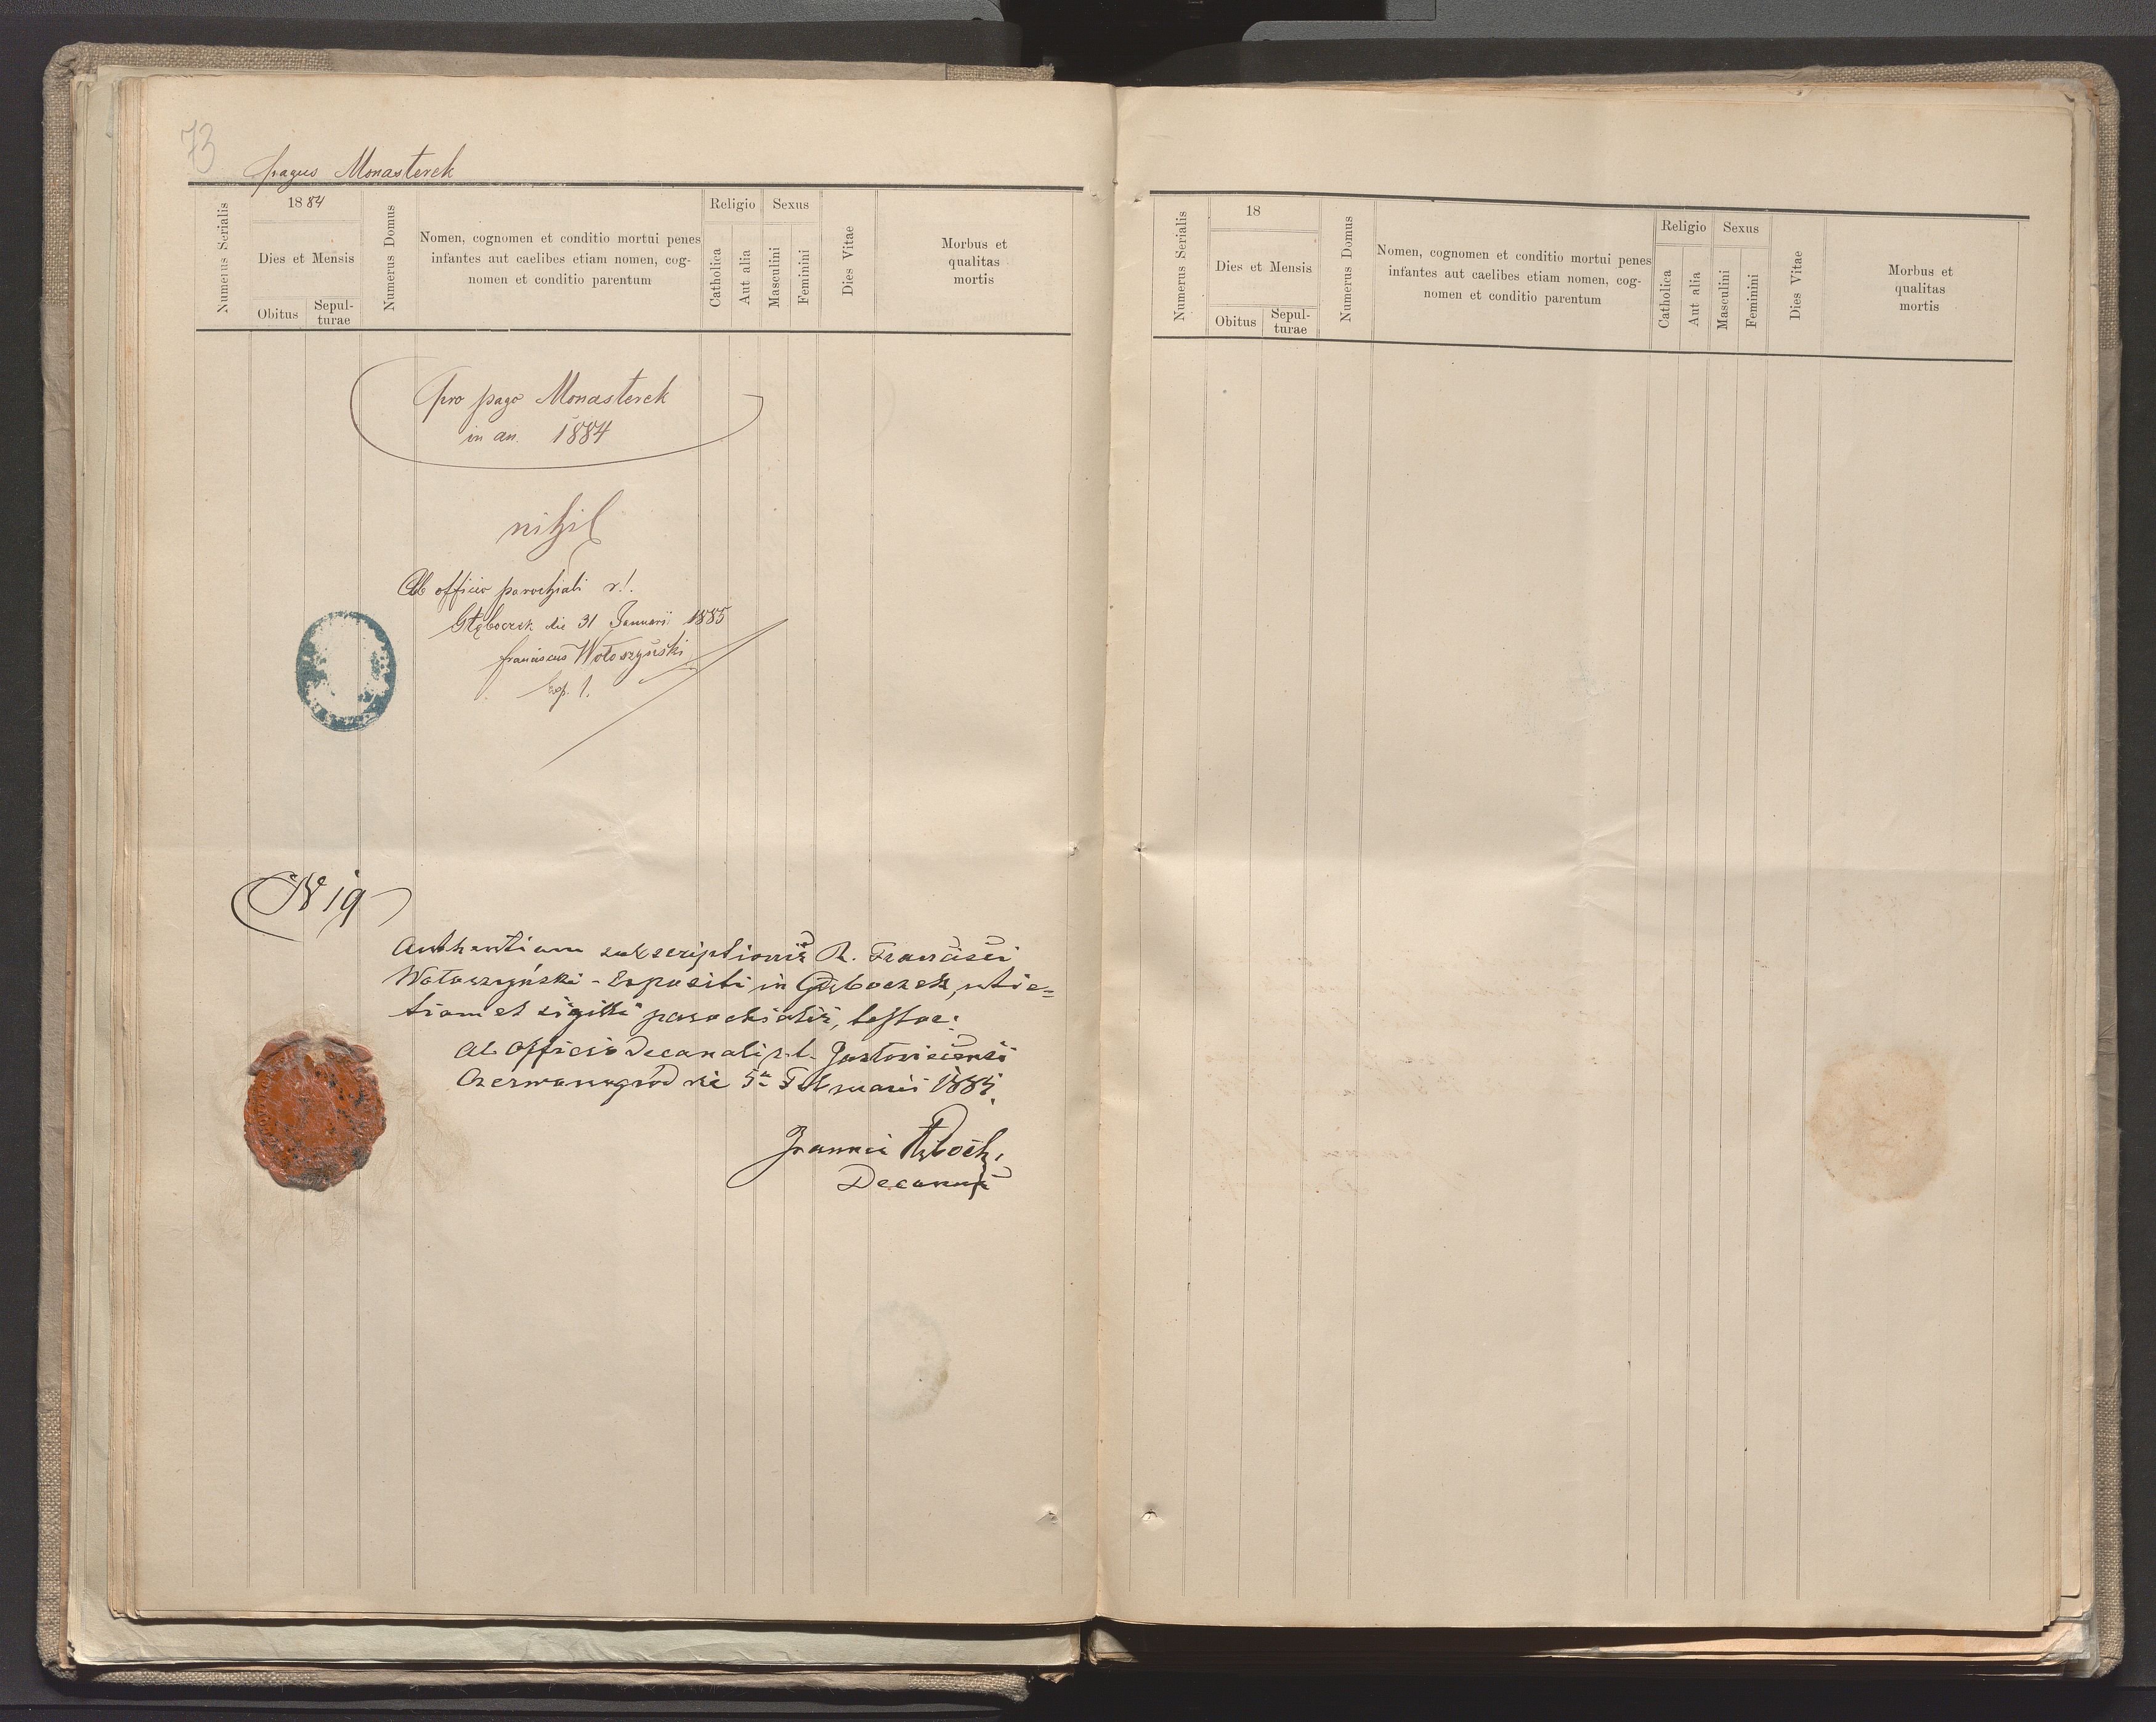 73
pagus Monasterek
Numerus Serialis
1884
Dies et Mensis
Obitus
Sepul-
turae
Numerus Domus
Nomen, cognomen et conditio mortui penes
infantes aut caelibes etiam nomen, cog-
nomen et conditio parentum
Religio
Catholica
Aut alia
Sexus
Masculini
Feminini
Dies Vitae
Morbus et
qualitas
mortis
Pro pago Monasterek
in an. 1884
nihil
Ab officio parochiali r.l.
Głęboczek die 31 Januarii 1885
Franciscus Wołoszyński
Exp. l.
N 19
Authentiam subscriptionis R. Francisci
Wołoszyński - Expositi in Głęboczek, utie=
tiam et sigilli parochialis, testor:
Ab Officio Decanali r. l. Jastoviciensi
Czerwonogród die 5ta Februarii 1885.
Joannes
Decanus
Numerus Serialis
18
Dies et Mensis
Obitus
Sepul-
turae
Numerus Domus
Nomen, cognomen et conditio mortui penes
infantes aut caelibes etiam nomen, cog-
nomen et conditio parentum
Religio
Catholica
Aut alia
Sexus
Masculini
Feminini
Dies Vitae
Morbus et
qualitas
mortis